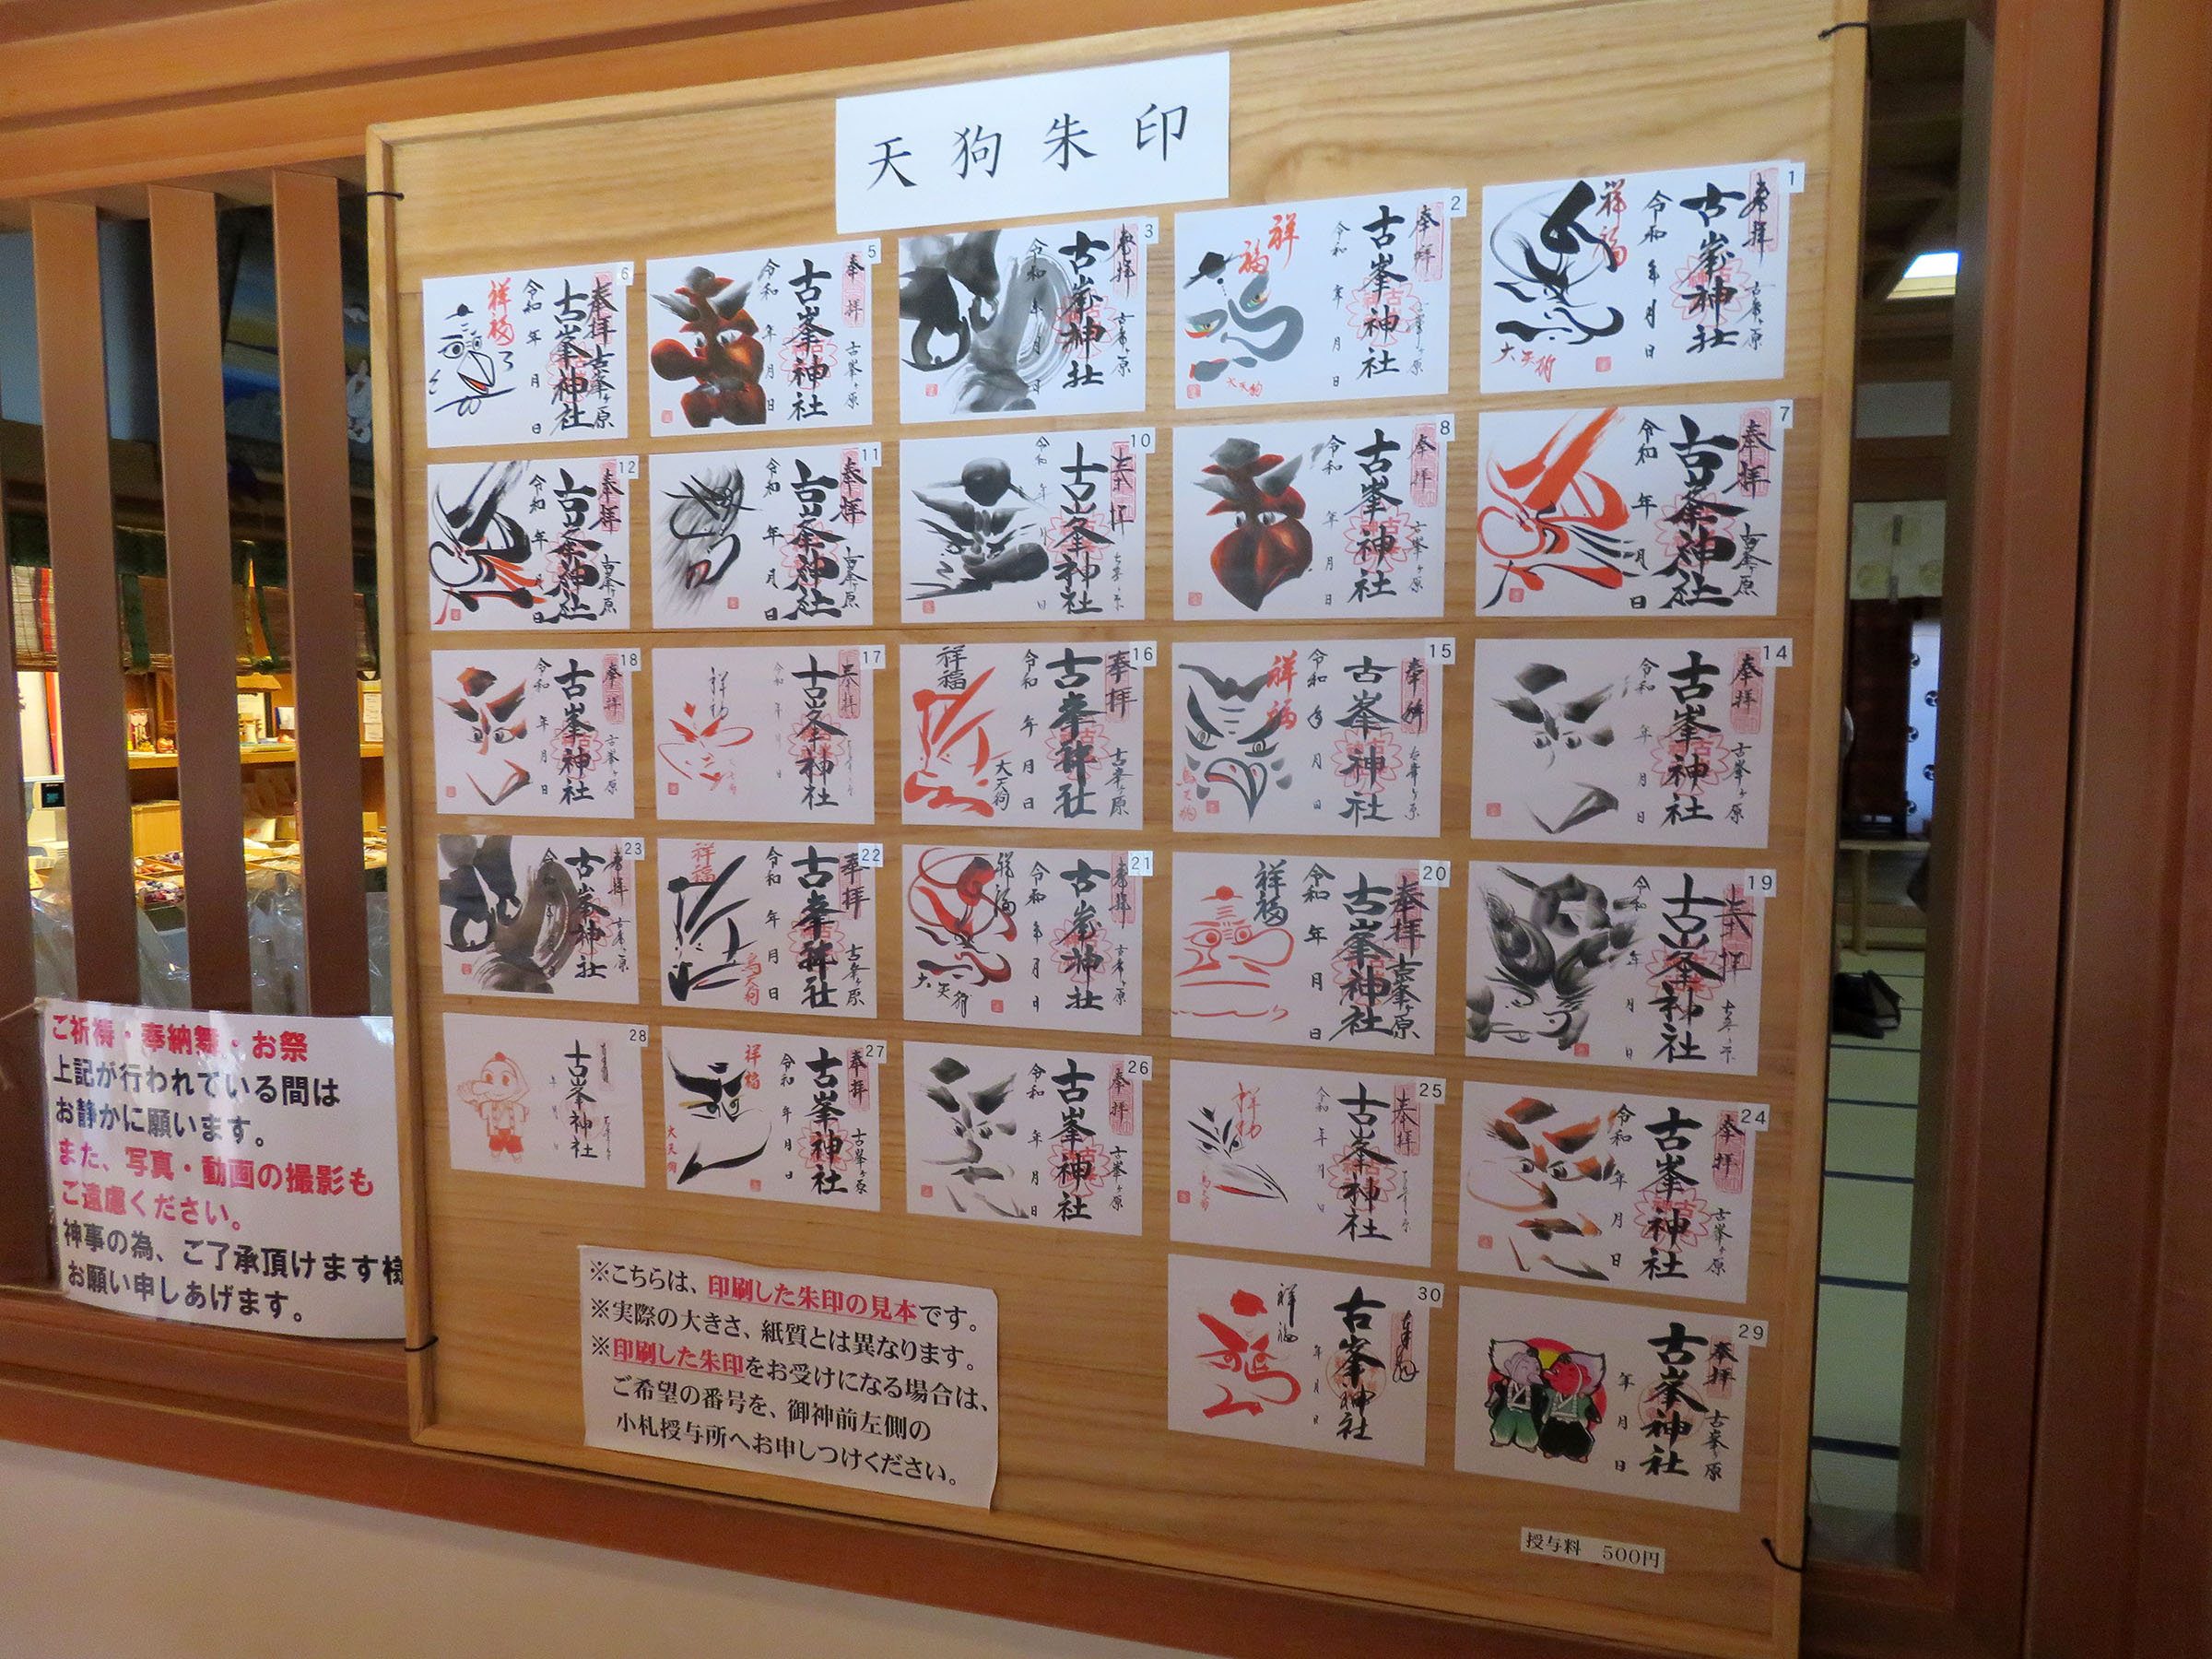 天狗朱印
1
奉拝
古峯ヶ原
古峯神社
令和 年 月 日
祥福
大天狗
2
奉拝
古峯ヶ原
古峯神社
令和 年 月 日
祥福
大天狗
3
奉拝
古峯ヶ原
古峯神社
令和 年 月 日
5
奉拝
古峯ヶ原
古峯神社
令和 年 月 日
6
奉拝 古峯ヶ原
古峯神社
令和 年 月 日
祥福
7
奉拝
古峯ヶ原
古峯神社
令和 年 月 日
8
奉拝
古峯ヶ原
古峯神社
令和 年 月 日
10
奉拝
古峯神社
令和 年 月 日
11
奉拝
古峯ヶ原
古峯神社
令和 年 月 日
12
奉拝
古峯ヶ原
古峯神社
令和 年 月 日
14
奉拝
古峯ヶ原
古峯神社
令和 年 月 日
15
奉拝
古峯ヶ原
古峯神社
令和 年 月 日
祥福
烏天狗
16
奉拝
古峯ヶ原
古峯神社
令和 年 月 日
祥福
大天狗
17
奉拝
古峯神社
令和 年 月 日
祥福
18
奉拝
古峯ヶ原
古峯神社
令和 年 月 日
19
奉拝
古峯神社
令和 年 月 日
20
奉拝 古峯ヶ原
古峯神社
令和 年 月 日
祥福
21
奉拝
古峯ヶ原
古峯神社
令和 年 月 日
祥福
大天狗
22
奉拝
古峯ヶ原
古峯神社
令和 年 月 日
祥福
烏天狗
23
奉拝
古峯ヶ原
古峯神社
令和 年 月 日
24
奉拝
古峯ヶ原
古峯神社
令和 年 月 日
25
奉拝
古峯神社
令和 年 月 日
祥福
烏天狗
26
奉拝
古峯ヶ原
古峯神社
令和 年 月 日
27
奉拝
古峯ヶ原
古峯神社
令和 年 月 日
祥福
大天狗
28
古峯神社
年 月 日
29
奉拝
古峯ヶ原
古峯神社
年 月 日
30
古峯神社
年 月 日
祥福
授与料 500円
※こちらは、印刷した朱印の見本です。
※実際の大きさ、紙質とは異なります。
※印刷した朱印をお受けになる場合は、
ご希望の番号を、御神前左側の
小札授与所へお申しつけください。
ご祈祷・奉納舞・お祭
上記が行われている間は
お静かに願います。
また、写真・動画の撮影も
ご遠慮ください。
神事の為、ご了承頂けます様
お願い申しあげます。